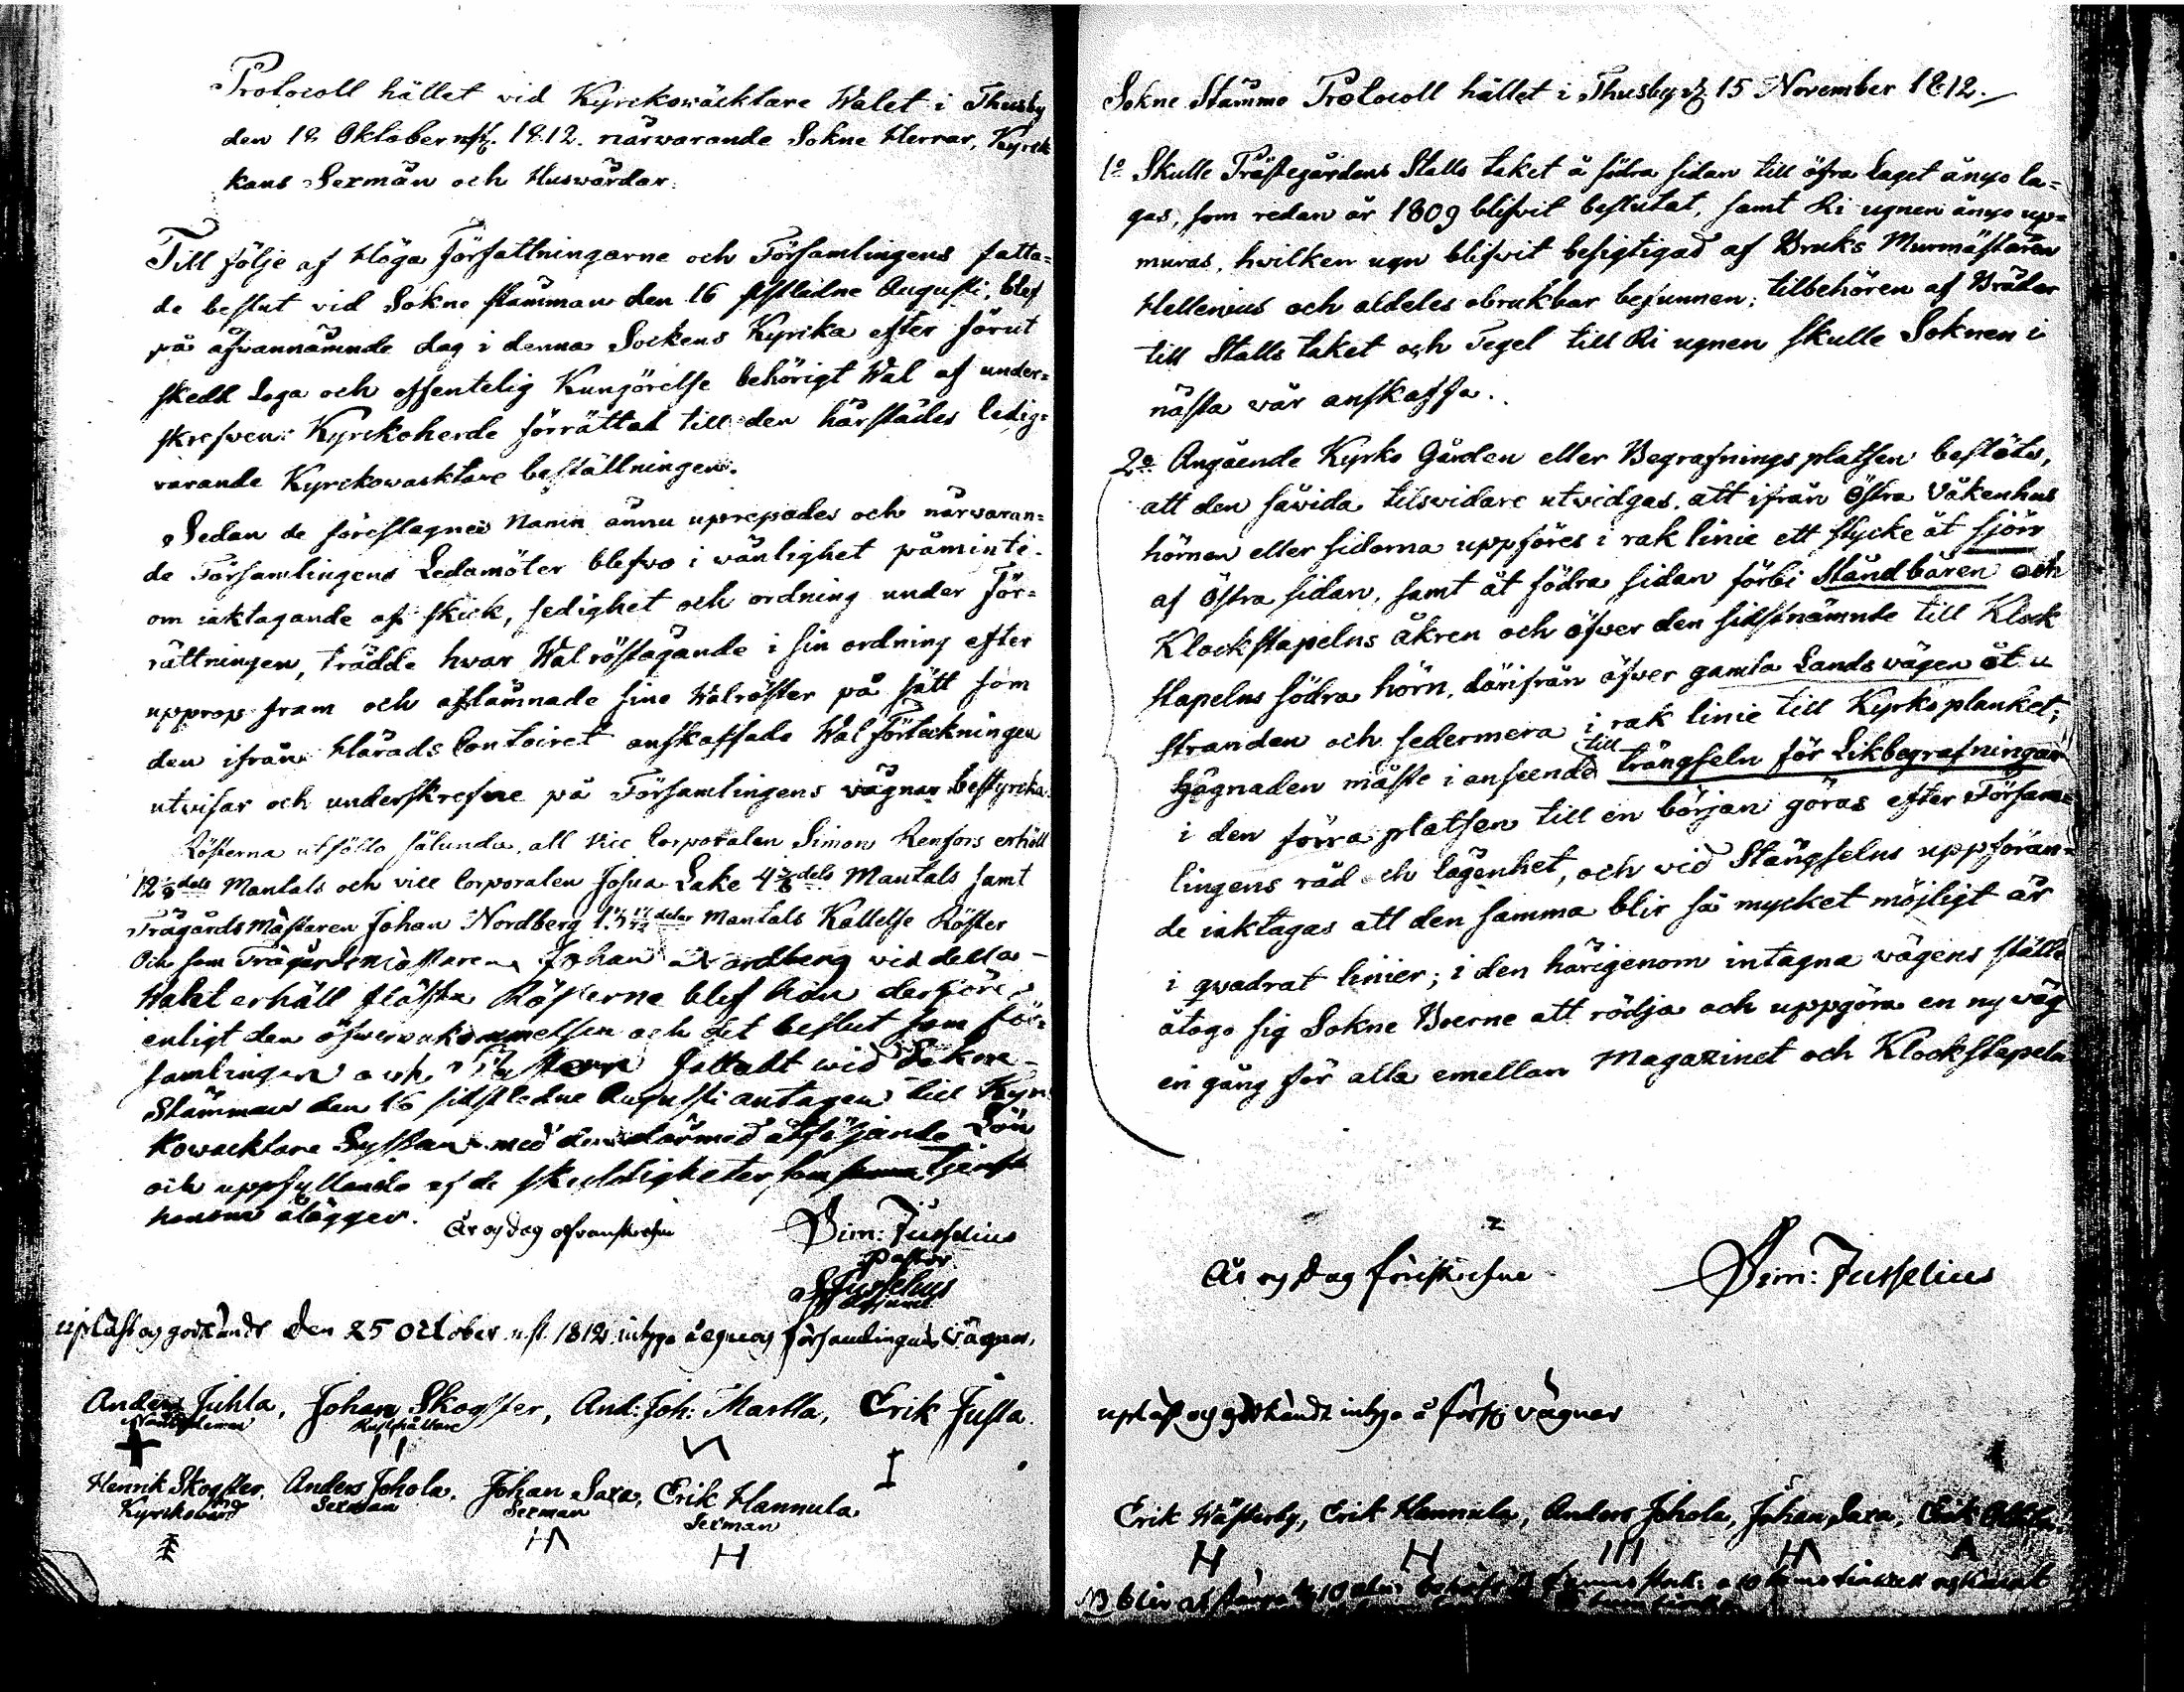 Protocoll hållet vid Kyrckowäcktare Walet i Thusby
den 18 Oktober nst. 1812. närvarande Sokne Herrar, Kyrck
kans Sexmän och Husvärdar.
Till följe af Höga Författningarne och Församlingens fatta=
de beslut vid Sokne stämman den 16 sistledne Augusti, blef
på ofvannämnde dag i denna Sockens Kyrika efter förut
skedd Laga och offentelig Kungörelse behörigt Wal af under=
skrefven Kyrckoherde förrättat till den härstädes ledig=
varande Kyrckowacktare beställningen.
Sedan de föreslagnes Namn ännu uprepades och närvaran=
de Församlingens Ledamöter blefvo i vänlighet påminte
om iakttagande af skick, sedighet och ordning under För=
rättningen, trädde hvar Walröstägande i sin ordning efter
upprop fram och aflämnade sine Walröster på sätt som
den ifrån Härads Contoiret anskaffade Wal Förteckningen
utvisar och underskrefne på Församlingens vägnar bestyrcka.
Rösterna utföllo sålunda, att Vice Corporalen Simon Renfors erhöll
12 dels Mantals och vice Corporalen Josua Lake 4 dels Mantals samt
Trägårds Mästaren Johan Nordberg Mantals Kallelse Röster
Och som Trägårdsmästaren Johan Nordberg vid detta
Walet erhåll flästa Rösterne blef han derföre
enligt den öfverenkommelsen och det beslut som För=
samlingen och fattadt wid Sokne
Stämman den 16 sidstledne Augusti antagen till Kyr
kowacktare Sysslan med den därmed åtföljande Lön
och uppfyllande af de skyldigheter, som tjenst
honom ålägger.
År og dag ofvanskrefne
Sim: Jusselius
Pastor
S Jusselius
Adjunct
upläst og godkändt den 25 October nst. 1812 intyga å egna og församlingens vägnar,
Anders Juhla, Johan Skogster, And: Joh: Martla, Erik Jusla.
Nämdeman Rusthållare
Henrik Skogster, Anders Johola, Johan Saxa, Erik Hannula
Kyrckovärd Sexman Sexman Sexman
Sokne Stämmo Protocoll hållet i Thusby d 15 November 1812.
1o Skulle Prästegårdens Stalls taket å södra sidan till öfra Laget änyo la=
gas, som redan år 1809 blifvit beslutat, samt Ri ugnen änyo up=
muras, hvilken ugn blifvit besigtigad af Bruks Murmästaren
Hellenius och aldeles obrukbar befunnen; tilbehören af Bräder
till Stalls taket och Tegel till Ri ugnen skulle Soknen i
nästa vår anskaffa.
2o Angående Kyrko Gården eller Begrafnings platsen beslöts,
att den såvida tilsvidare utvidgas, att ifrån Östra Våkenhus
hörnen eller sidorna uppföres i rak linie ett stycke åt sjön
af Östra sidan, samt åt södra sidan förbi Ståndbåren och
Klockstapelns åkren och öfver den sidstnämnde till Klock
stapelns södra hörn, därifrån öfver gamla Landsvägen åt
stranden och sedermera i rak linie till Kyrko planket;
hägnaden måste i anseende till trängseln för Likbegrafningar
i den förra platsen till en början göras efter Försam=
lingens råd och lägenhet, och vid Stängselns uppföran=
de iaktagas att den samma blir så mycket möjligt är
i qvadrat linier; i den härigenom intagna vägens ställe
åtogo sig Sokne Boerne att rödja och uppgöra en ny väg
en gång för alla emellan Magazinet och Klockstapeln
År og dag förskrefne
Sim: Jusselius
upläst og godkändt intyga å förs: vägnar
Erik Wästerby, Erik Hannula, Anders Johola, Johan Saxa, Erik